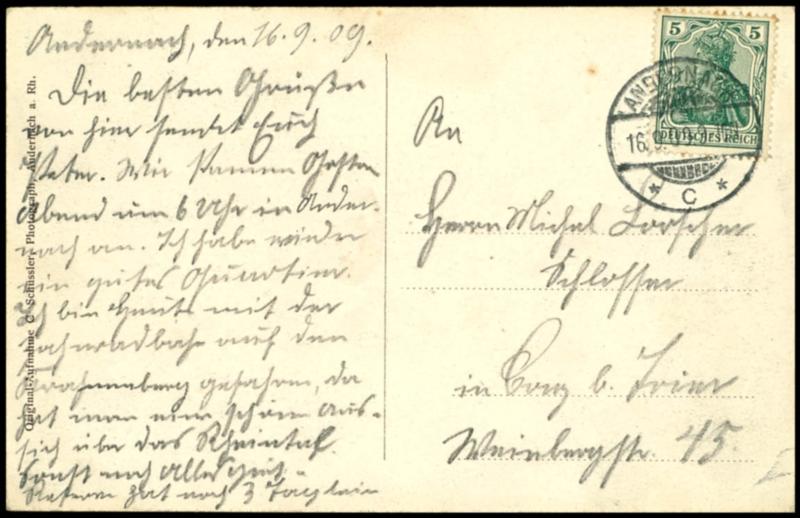 Andernach, den 16.9.09.
Die besten Grüße
von hier sendet Euch
Peter. Wir kamen Gestern
Abend um 6 Uhr in Ander-
nach an. Ich habe wieder
ein gutes Quartier.
Ich bin Heute mit der
Zahnradbahn auf den
gefahren, da
hat man eine schöne Aus-
sicht über das Rheintal.
Sonst noch Alles gut.
hat noch 3
Original-Aufnahme C. Schüssler, Photograph, Andernach a. Rh.
5 5
DEUTSCHES REICH
ANDERNACH
16.9.
* C *
An
Herrn Michel
Schlosser
in b. Trier
Weinbergstr. 45.